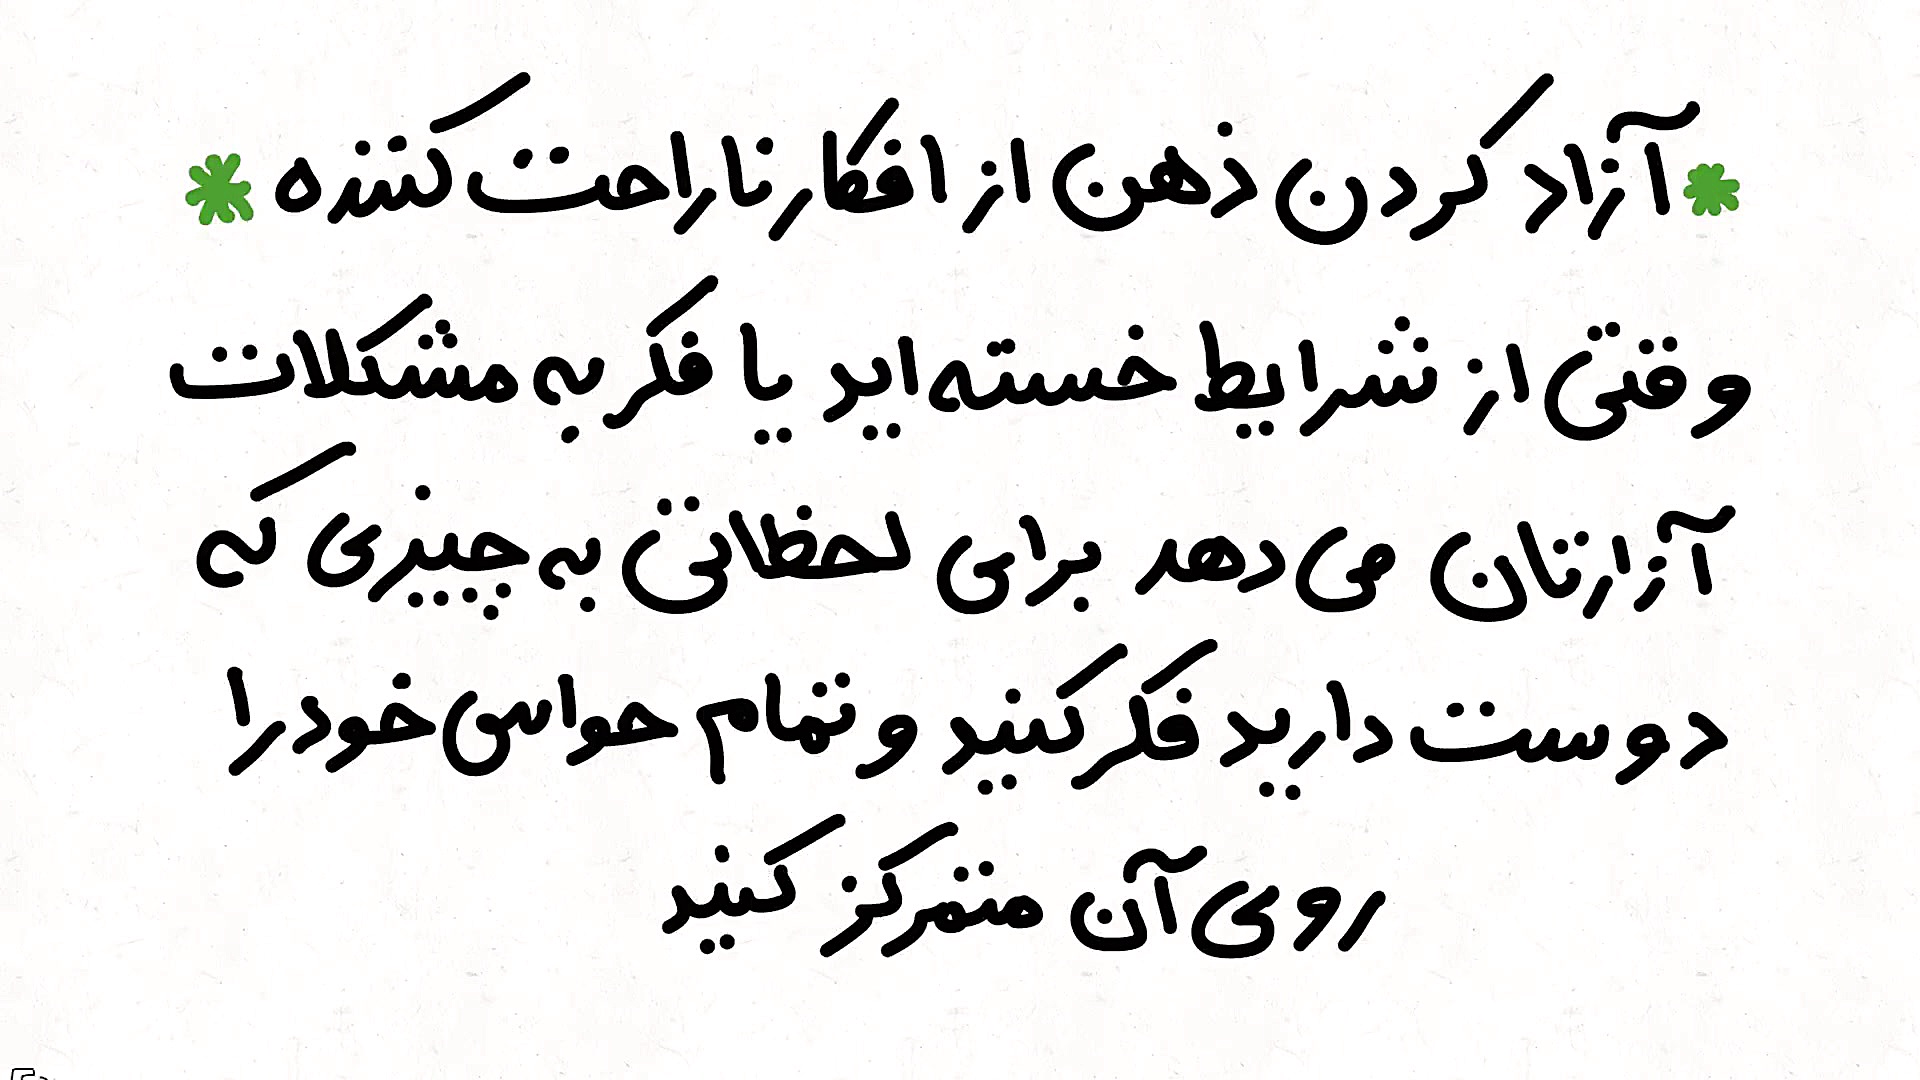 * آزاد کردن ذهن از افکار ناراحت کننده *
وقتی از شرایط خسته اید یا فکر به مشکلات
آزارتان می دهد برای لحظاتی به چیزی که
دوست دارید فکر کنید و تمام حواس خود را
روی آن متمرکز کنید